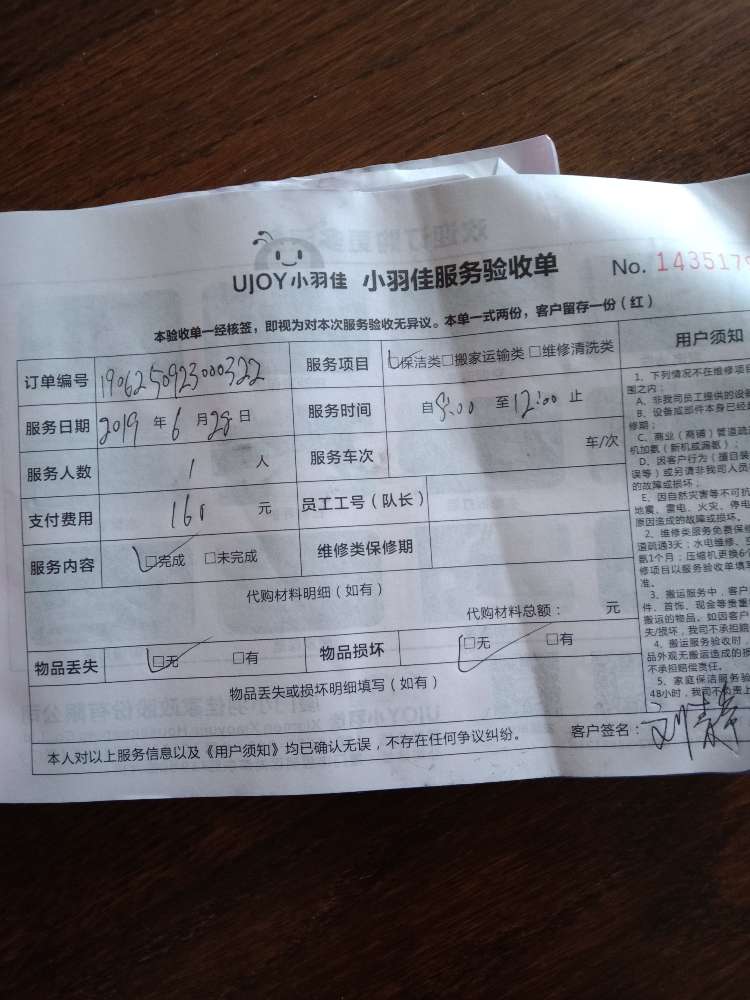 UJOY小羽佳 小羽佳服务验收单 No. 1435179
本验收单一经核签，即视为对本次服务验收无异议。本单一式两份，客户留存一份（红）
订单编号 1906250923000322 服务项目 ☑保洁类□搬家运输类□维修清洗类
服务日期 2019 年 6 月 28 日 服务时间 自 8:00 至 12:00 止
服务人数 1 人 服务车次 车/次
支付费用 160 元 员工工号（队长）
服务内容 ☑完成 □未完成 维修类保修期
代购材料明细（如有）
代购材料总额： 元
物品丢失 ☑无 □有 物品损坏 ☑无 □有
物品丢失或损坏明细填写（如有）
本人对以上服务信息以及《用户须知》均已确认无误，不存在任何争议纠纷。 客户签名：
用户须知
1、下列情况不在维修项目
围之内：
A、非我司员工提供的设备
B、设备或部件本身已经
修期；
C、商业（商铺）管道疏
机加氨（新机或漏氨）；
D、因客户行为（擅自装
误等）或另请非我司人员
的故障或损坏；
E、因自然灾害等不可抗
地震、雷电、火灾、停电
原因造成的故障或损坏。
2、维修类服务免费保修
道疏通3天；水电维修、
氨1个月；压缩机更换6个
修项目以服务验收单填写
准。
3、搬运服务中，客户
件、首饰、现金等贵重
搬运的物品。如因客户
失/损坏，我司不承担赔
4、搬运服务验收时，
品外观无搬运造成的损
不承担赔偿责任。
5、家庭保洁服务验
48小时，我司不负责上